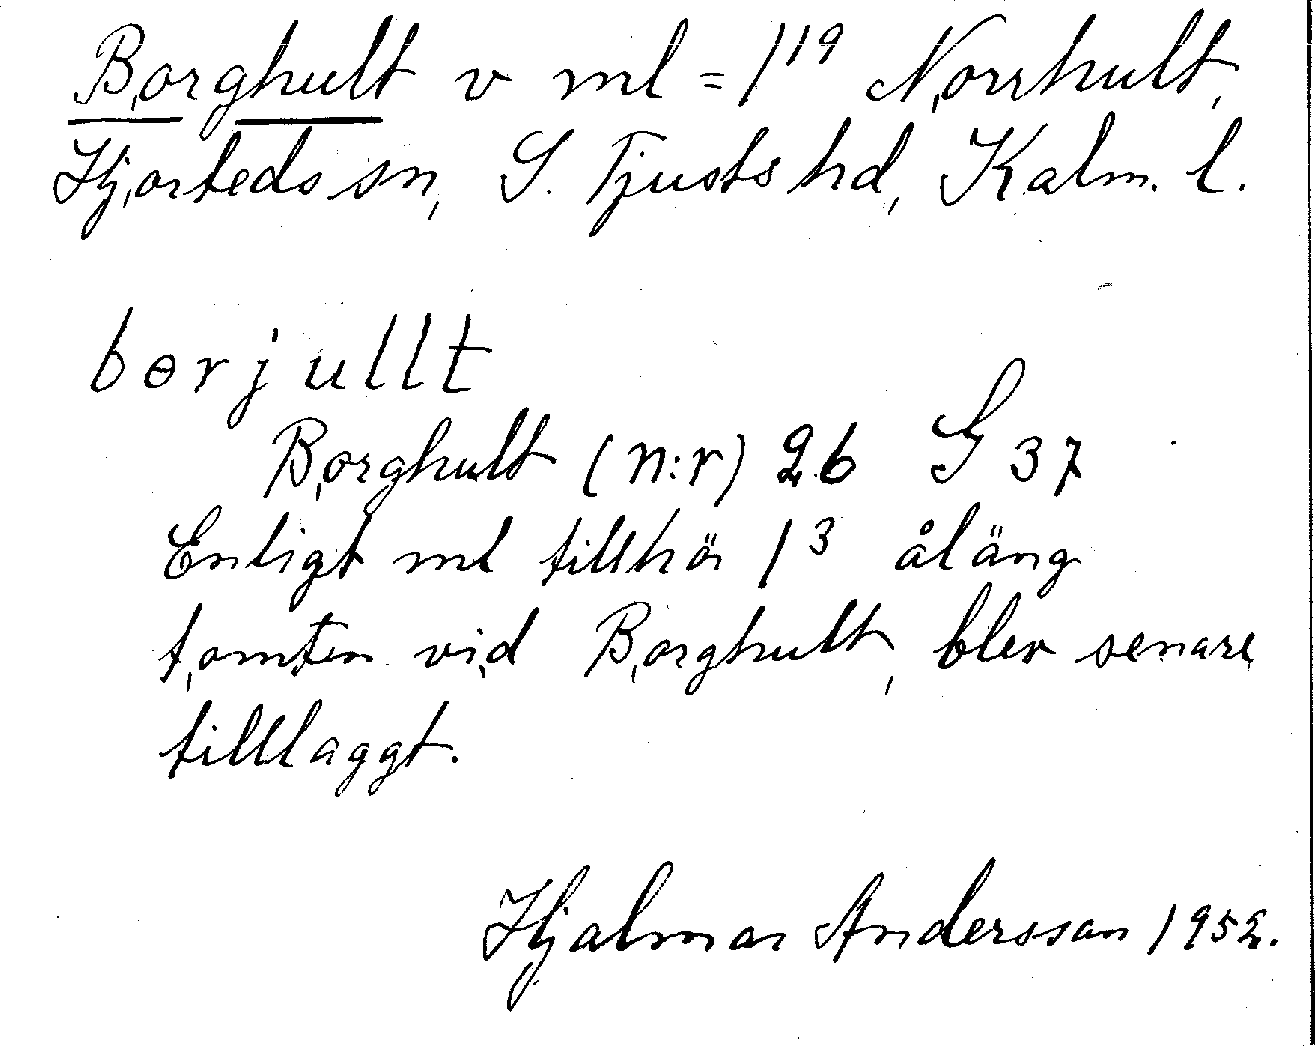 Borghult v ml = 1¹⁹ Norrhult,
Hjorteds sn, S. Tjusts hd, Kalm. l.
bɵrjullt
Borghult (n:r) 26 G 37
Enligt ml tillhör 1³ åläng
tomten vid Borghult, blev senare
tilllaggt.
Hjalmar Andersson 1952.